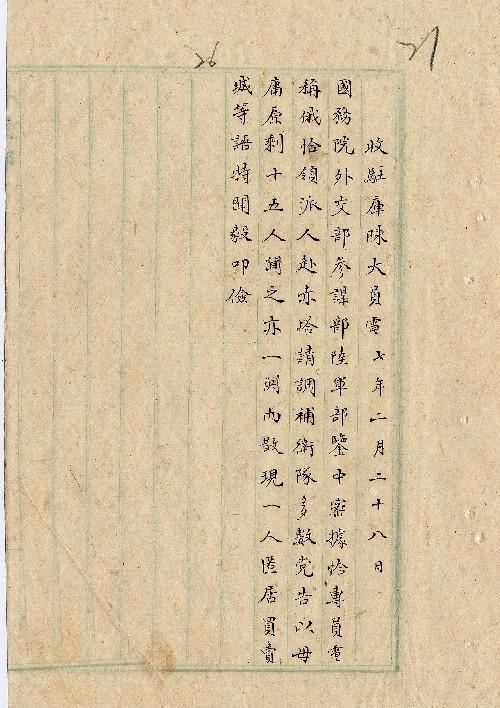 27
26
收駐庫陳大員電 七年二月二十八日
國務院外交部參謀部陸軍部鑒中密據恰專員電
稱俄恰領派人赴赤塔請調補衛隊多數党告以毋
庸原剩十五人聞之亦一閧而散現一人匿居買賣
城等語特聞毅叩儉